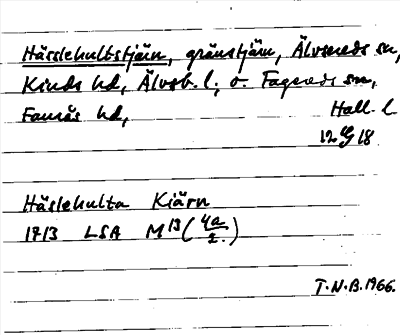 Hässlehultstjärn, gränstjärn, Älvsereds sn,
Kinds hd, Älvsb. l; o. Fagereds sn,
Faurås hd, Hall. l
Häslehulta Kiärn
1713 LSA M13 (4a/2.)
T.N.B. 1966.